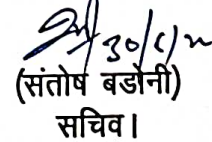 30/6/22
(संतोष बडोनी)
सचिव।